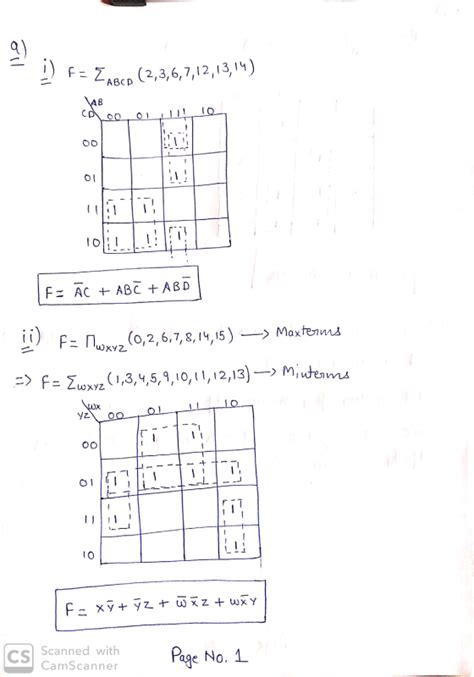 9)
i) F = Σ_ABCD (2,3,6,7,12,13,14)
AB
CD 00 01 11 10
00 1
01 1
11 1 1
10 1 1 1
F = A̅C + ABC̅ + ABD̅
ii) F = Π_WXYZ (0,2,6,7,8,14,15) → Maxterms
=> F = Σ_WXYZ (1,3,4,5,9,10,11,12,13) → Minterms
WX
YZ 00 01 11 10
00 1 1
01 1 1 1 1
11 1 1
10 1
F = XY̅ + Y̅Z + W̅X̅Z + WX̅Y
CS Scanned with
CamScanner
Page No. 1